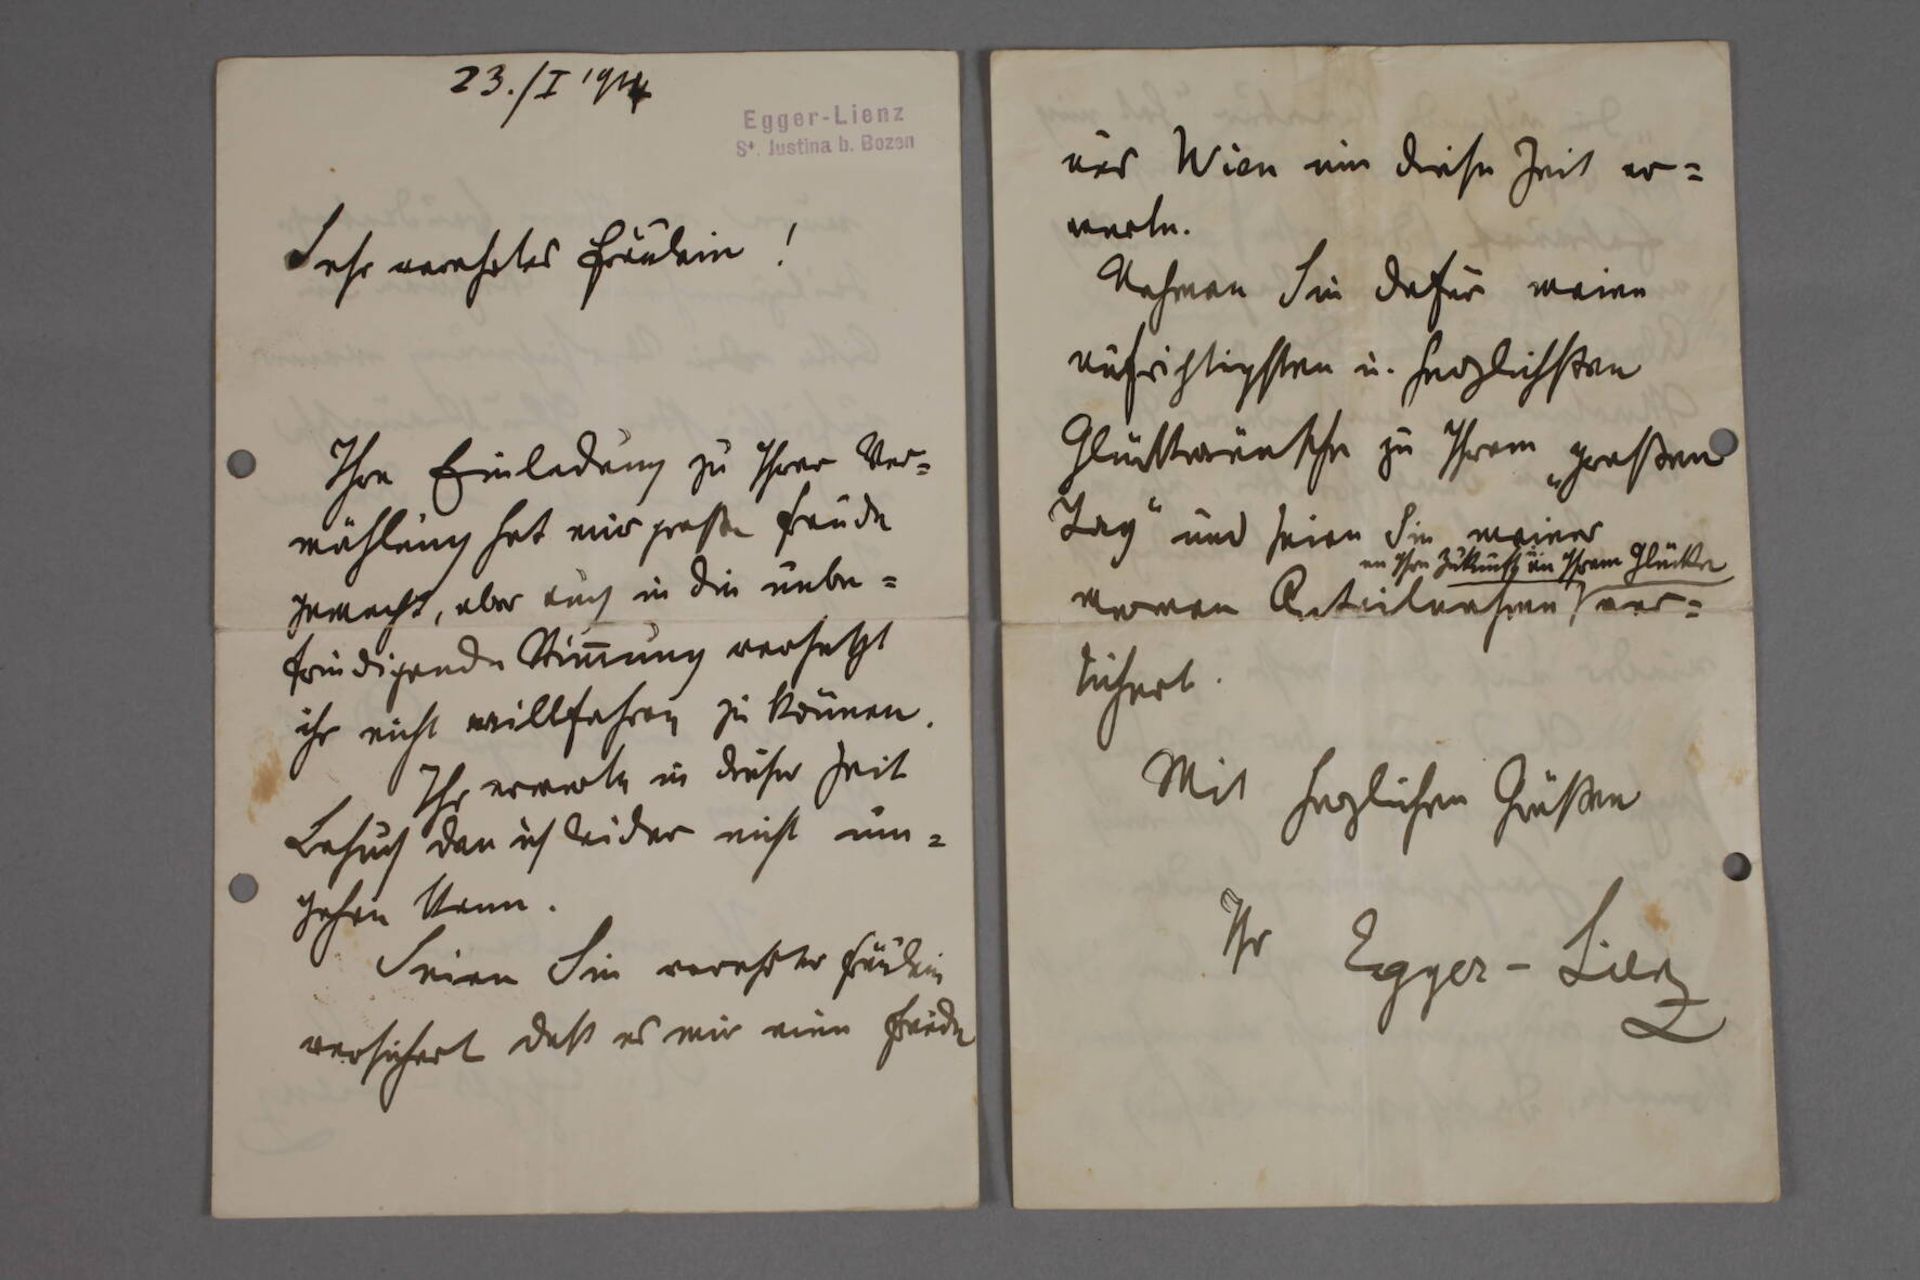 23./I 1914
Egger-Lienz
St. Justina b. Bozen
Sehr verehrtes Fräulein!
Ihre Einladung zu Ihrer Ver=
mählung hat mir große Freude
gemacht, aber auch in die unbe=
friedigende Stimmung versetzt
ihr nicht willfahren zu können.
Ich erwarte in dieser Zeit
Besuch den ich leider nicht um=
gehen kann.
Seien Sie verehrtes Fräulein
versichert daß es mir eine Freude
Wien um diese Zeit er=
warte.
Nehmen Sie dafür meine
aufrichtigsten u. herzlichsten
Glückwünsche zu Ihrem „großen
Tag“ und seien Sie meiner
an Ihre Zukunft u. Ihrem Glücke
warmen Anteilnahme ver=
sichert.
Mit herzlichen Grüßen
Ihr Egger-Lienz